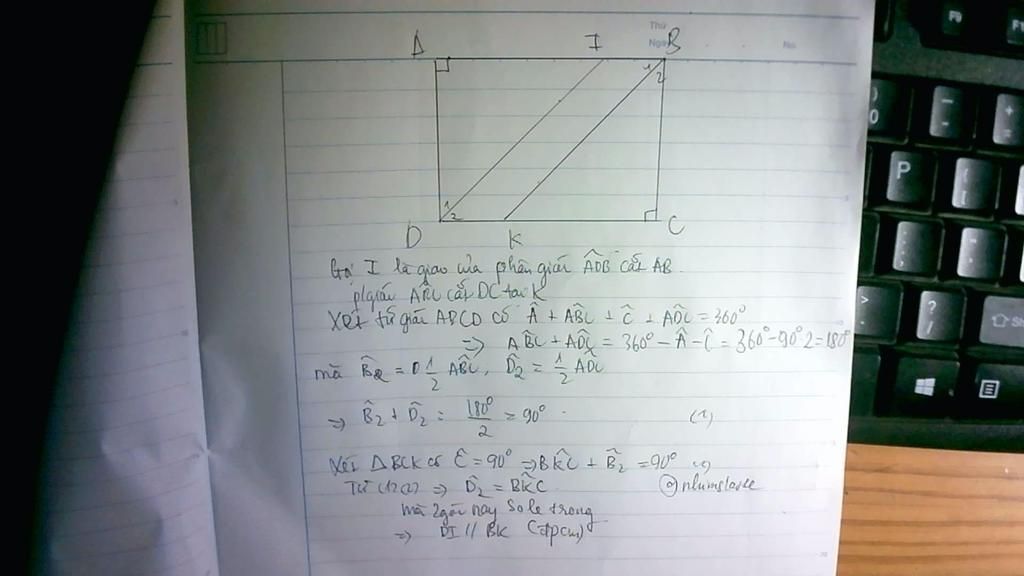 Thứ
Ngày
No
A I B
1 2
1 2
D K C
Gọi I là giao của phân giác ADB cắt AB
p/giác ABC cắt DC tại K
Xét tứ giác ABCD có Â + ABC + Ĉ + ADC = 360°
=> ABC + ADC = 360° - Â - Ĉ = 360° - 90°.2 = 180°
mà B̂2 = 1/2 ABC, D̂2 = 1/2 ADC
=> B̂2 + D̂2 = 180°/2 = 90° (1)
Xét ΔBCK có Ĉ = 90° => BKC + B̂2 = 90° (2)
Từ (1)(2) => D̂2 = BKC
mà 2 góc này so le trong
=> DI // BK (đpcm)
P